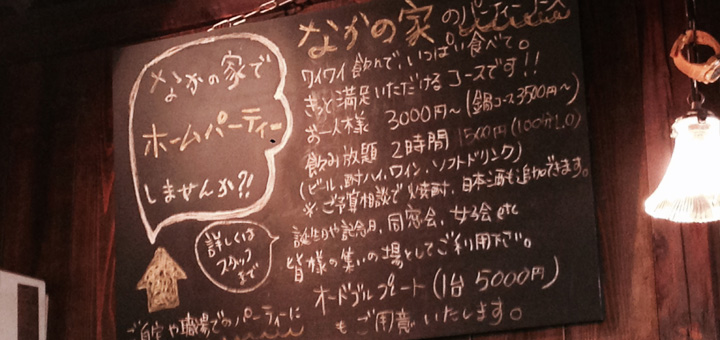 なかの家で
ホームパーティー
しませんか?!
詳しくは
スタッフ
まで
なかの家のパーティープラン
ワイワイ飲んで、いっぱい食べて。
きっと満足いただけるコースです!!
お一人様 3000円〜(鍋コース3500円〜)
飲み放題 2時間 1500円(100分L.O)
(ビール,酎ハイ,ワイン,ソフトドリンク)
※ご予算相談で焼酎,日本酒も追加できます。
誕生日や記念日,同窓会,女子会etc
皆様の集いの場としてご利用下さい。
オードブルプレート(1台 5000円)
もご用意いたします。
ご自宅や職場でのパーティーに